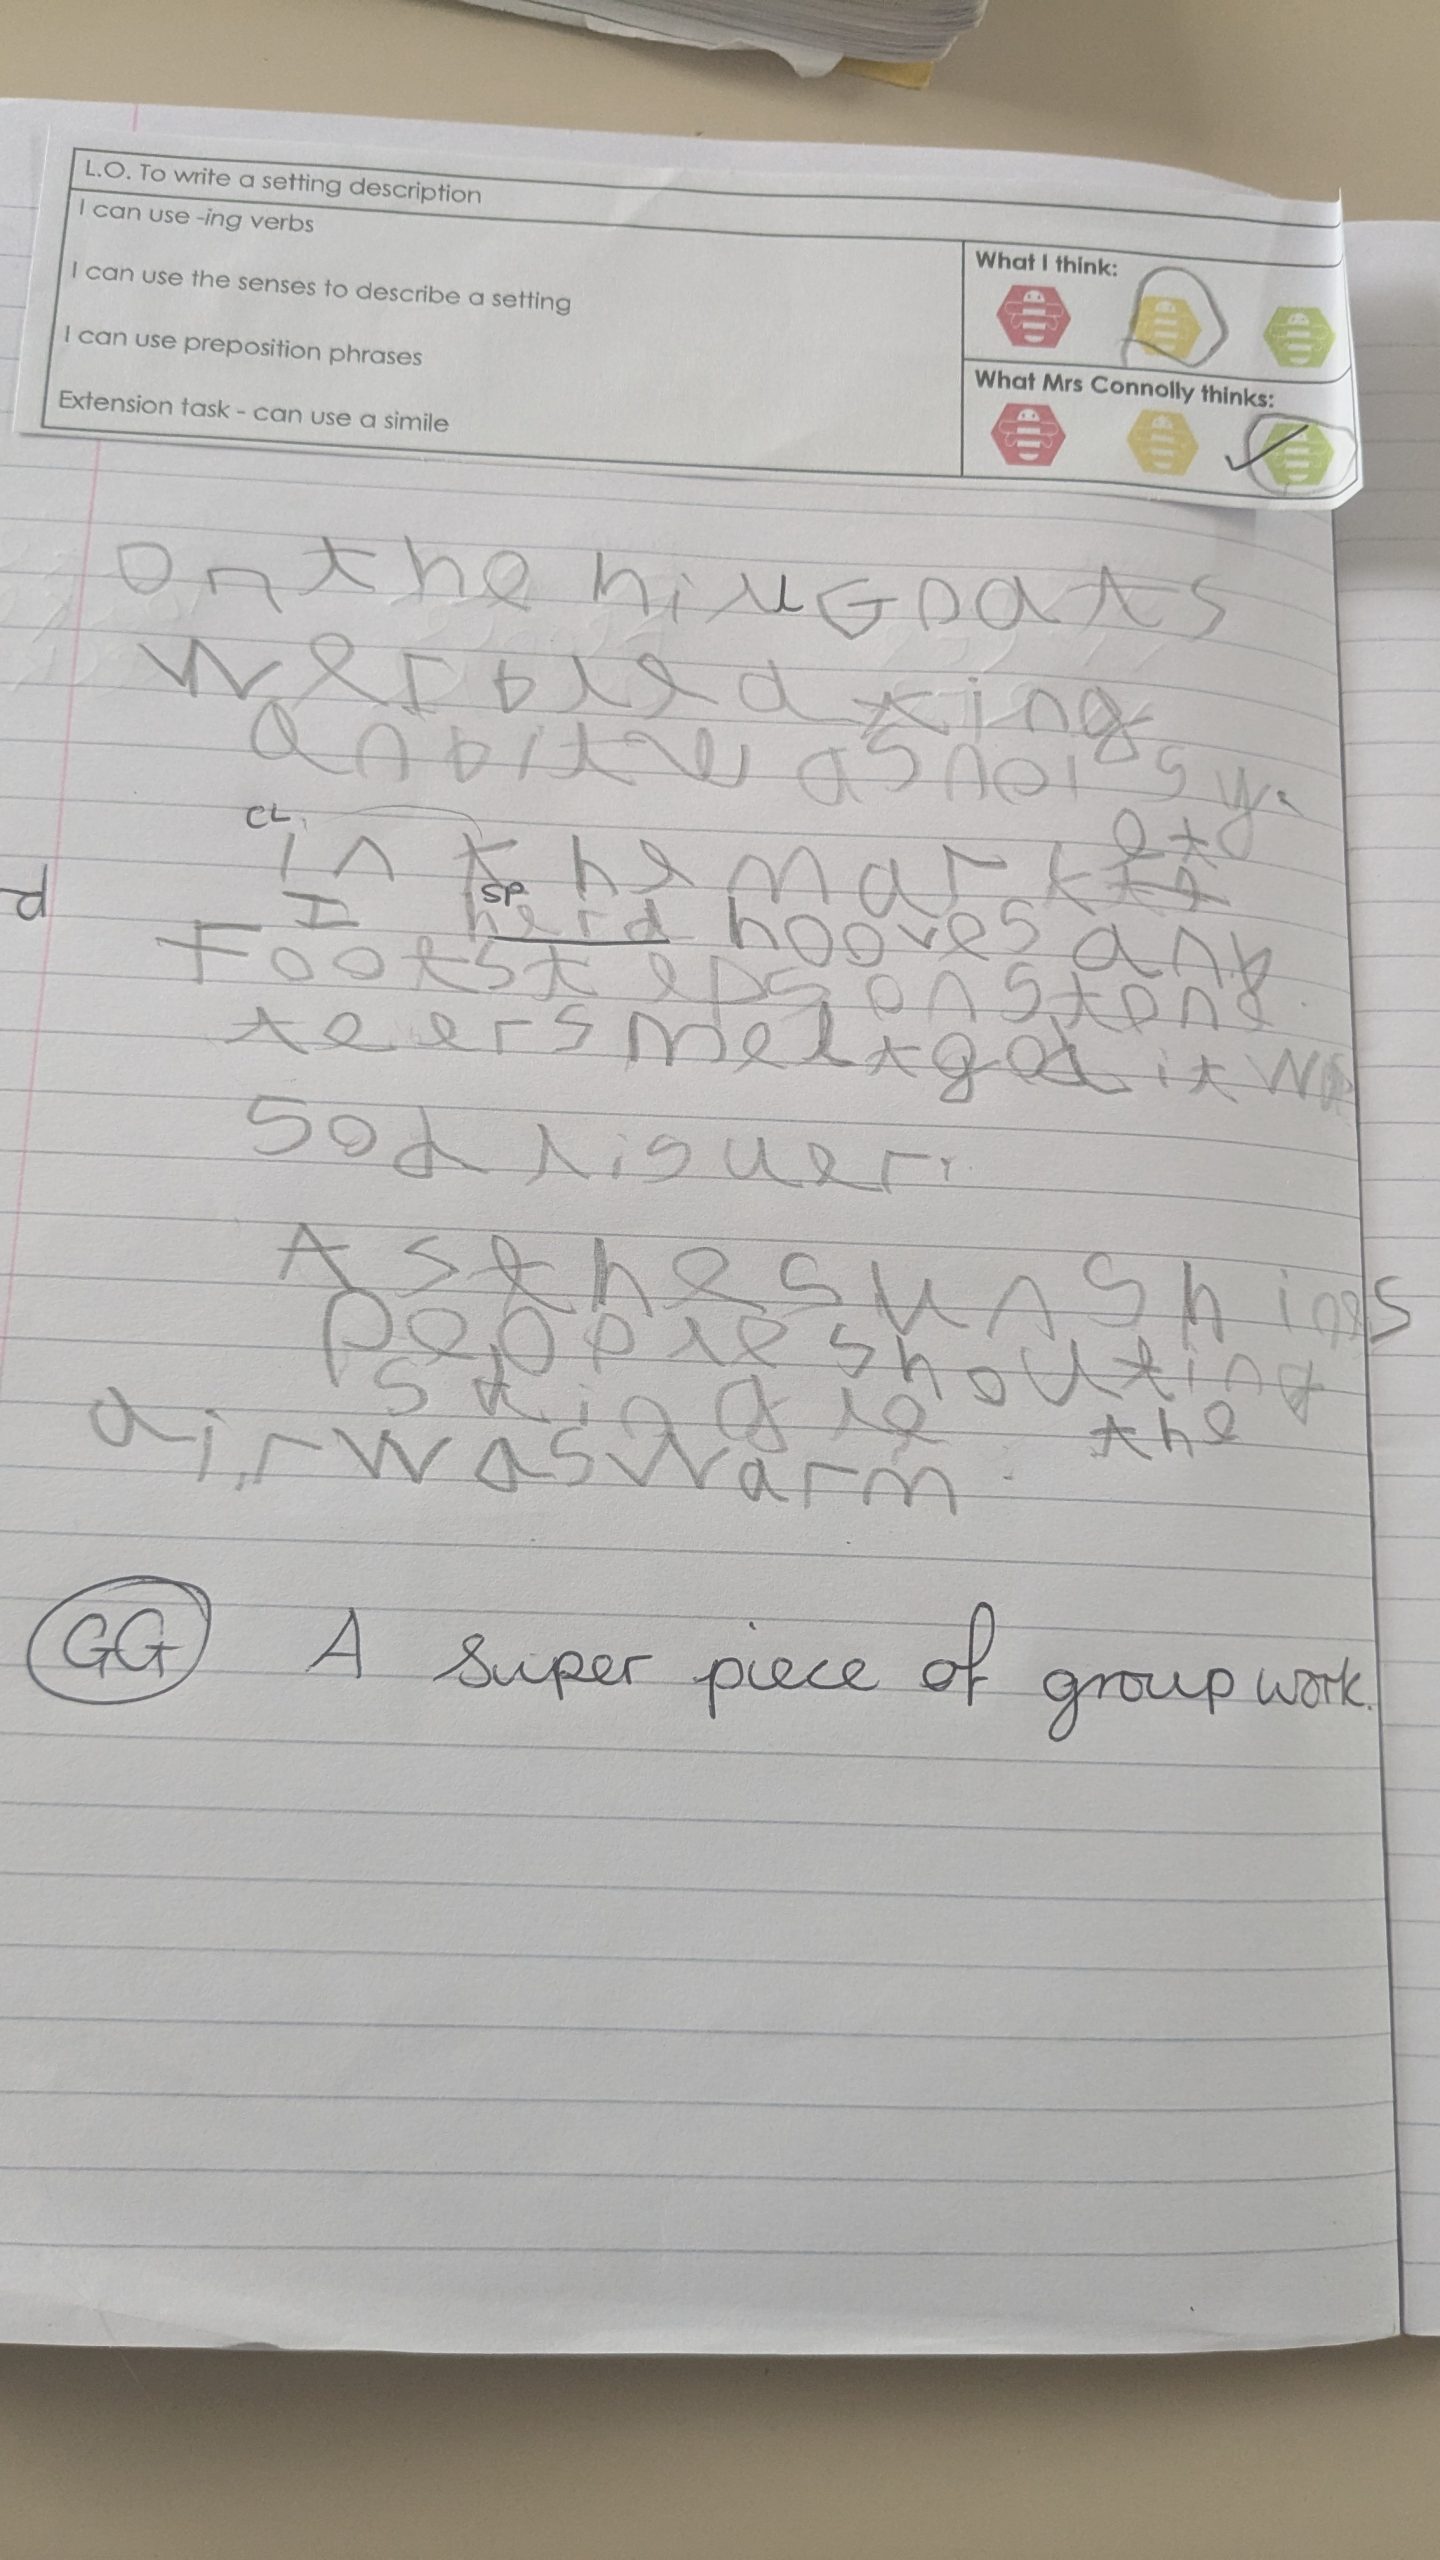 L.O. To write a setting description
I can use -ing verbs
I can use the senses to describe a setting
I can use preposition phrases
Extension task - can use a simile
What I think:
What Mrs Connolly thinks:
on the hill Goats
wer bleating
an bit was noisy.
CL
in the market
SP
d
I herd hooves and
Footsteps on stone
teer smelt god it was
so d
As the sun shines
people shouting
the
air was warm.
GG A super piece of group work.